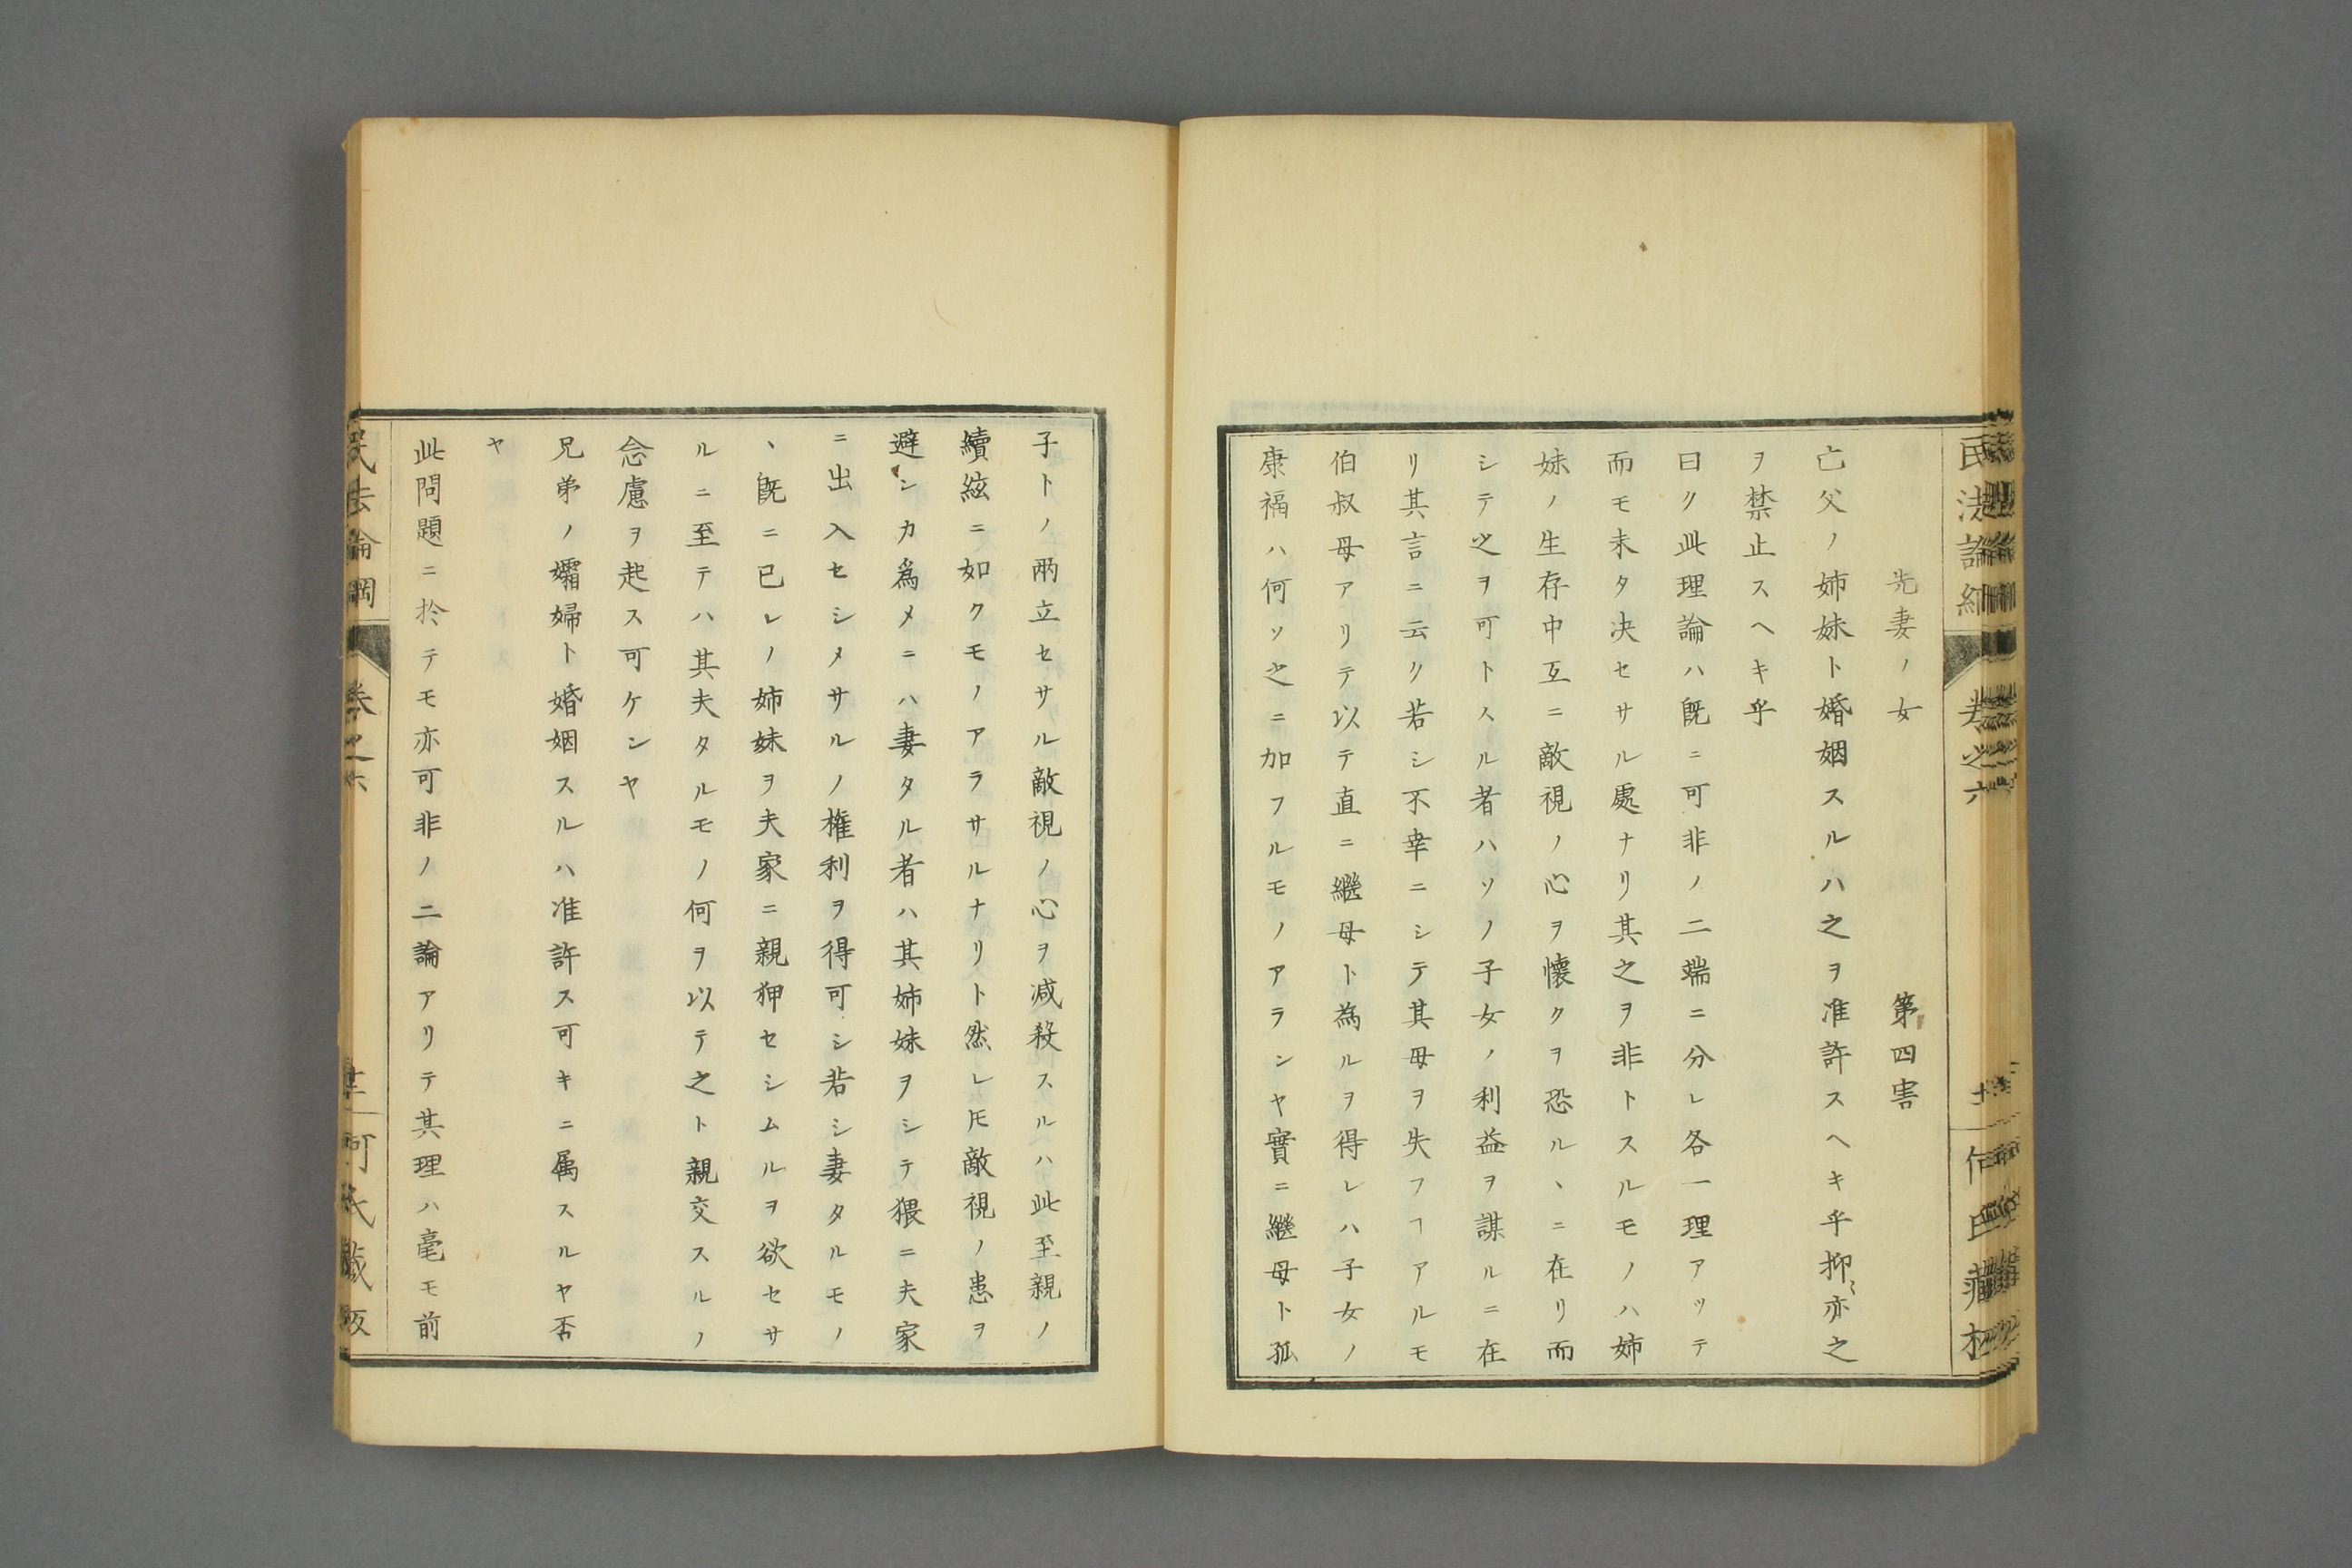 先妻ノ女　第四害
亡父ノ姉妹ト婚姻スルハ之ヲ准許スヘキ乎抑〻亦之
ヲ禁止スヘキ乎
曰ク此理論ハ既ニ可非ノ二端ニ分レ各一理アッテ
而モ未タ决セサル處ナリ其之ヲ非トスルモノハ姉
妹ノ生存中互ニ敵視ノ心ヲ懐クヲ恐ルヽニ在リ而
シテ之ヲ可トスル者ハソノ子女ノ利益ヲ謀ルニ在
リ其言ニ云ク若シ不幸ニシテ其母ヲ失フヿアルモ
伯叔母アリテ以テ直ニ繼母ト為ルヲ得レハ子女ノ
康福ハ何ソ之ニ加フルモノアランヤ實ニ繼母ト孤
子トノ兩立セサル敵視ノ心ヲ减殺スルハ此至親ノ
續絃ニ如クモノアラサルナリト然レ𪜈敵視ノ患ヲ
避シカ爲メニハ妻タル者ハ其姉妹ヲシテ猥ニ夫家
ニ出入セシメサルノ権利ヲ得可シ若シ妻タルモノ
ヽ既ニ已レノ姉妹ヲ夫家ニ親狎セシムルヲ欲セサ
ルニ至テハ其夫タルモノ何ヲ以テ之ト親交スルノ
念慮ヲ起ス可ケンヤ
兄弟ノ孀婦ト婚姻スルハ准許ス可キニ属スルヤ否
ヤ
此問題ニ於テモ亦可非ノ二論アリテ其理ハ毫モ前
民法論綱　卷之六　何氏藏版